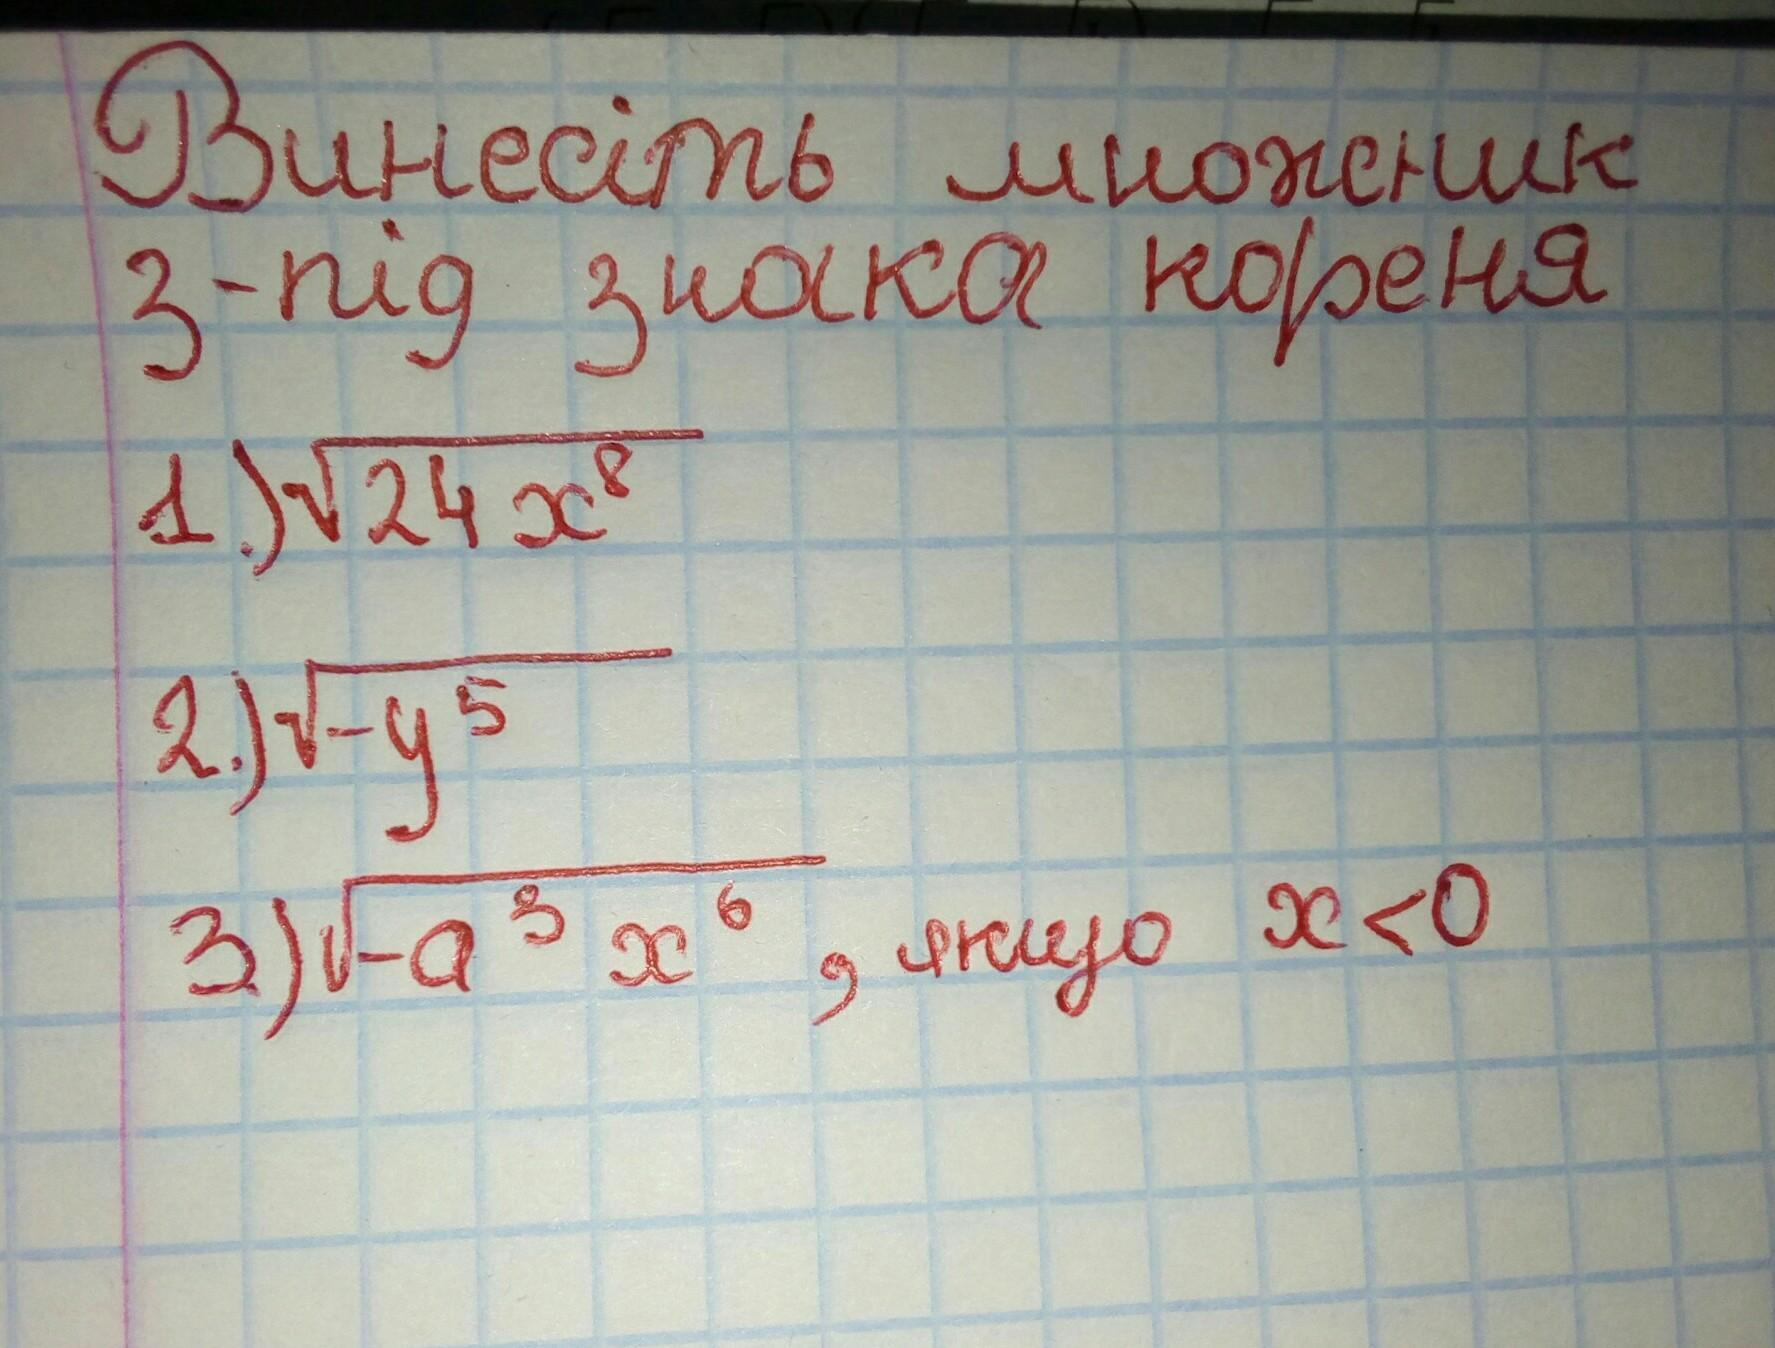 Винесіть множник
з-під знака кореня
1.) √24x⁸
2.) √-y⁵
3.) √-a³x⁶, якщо x<0